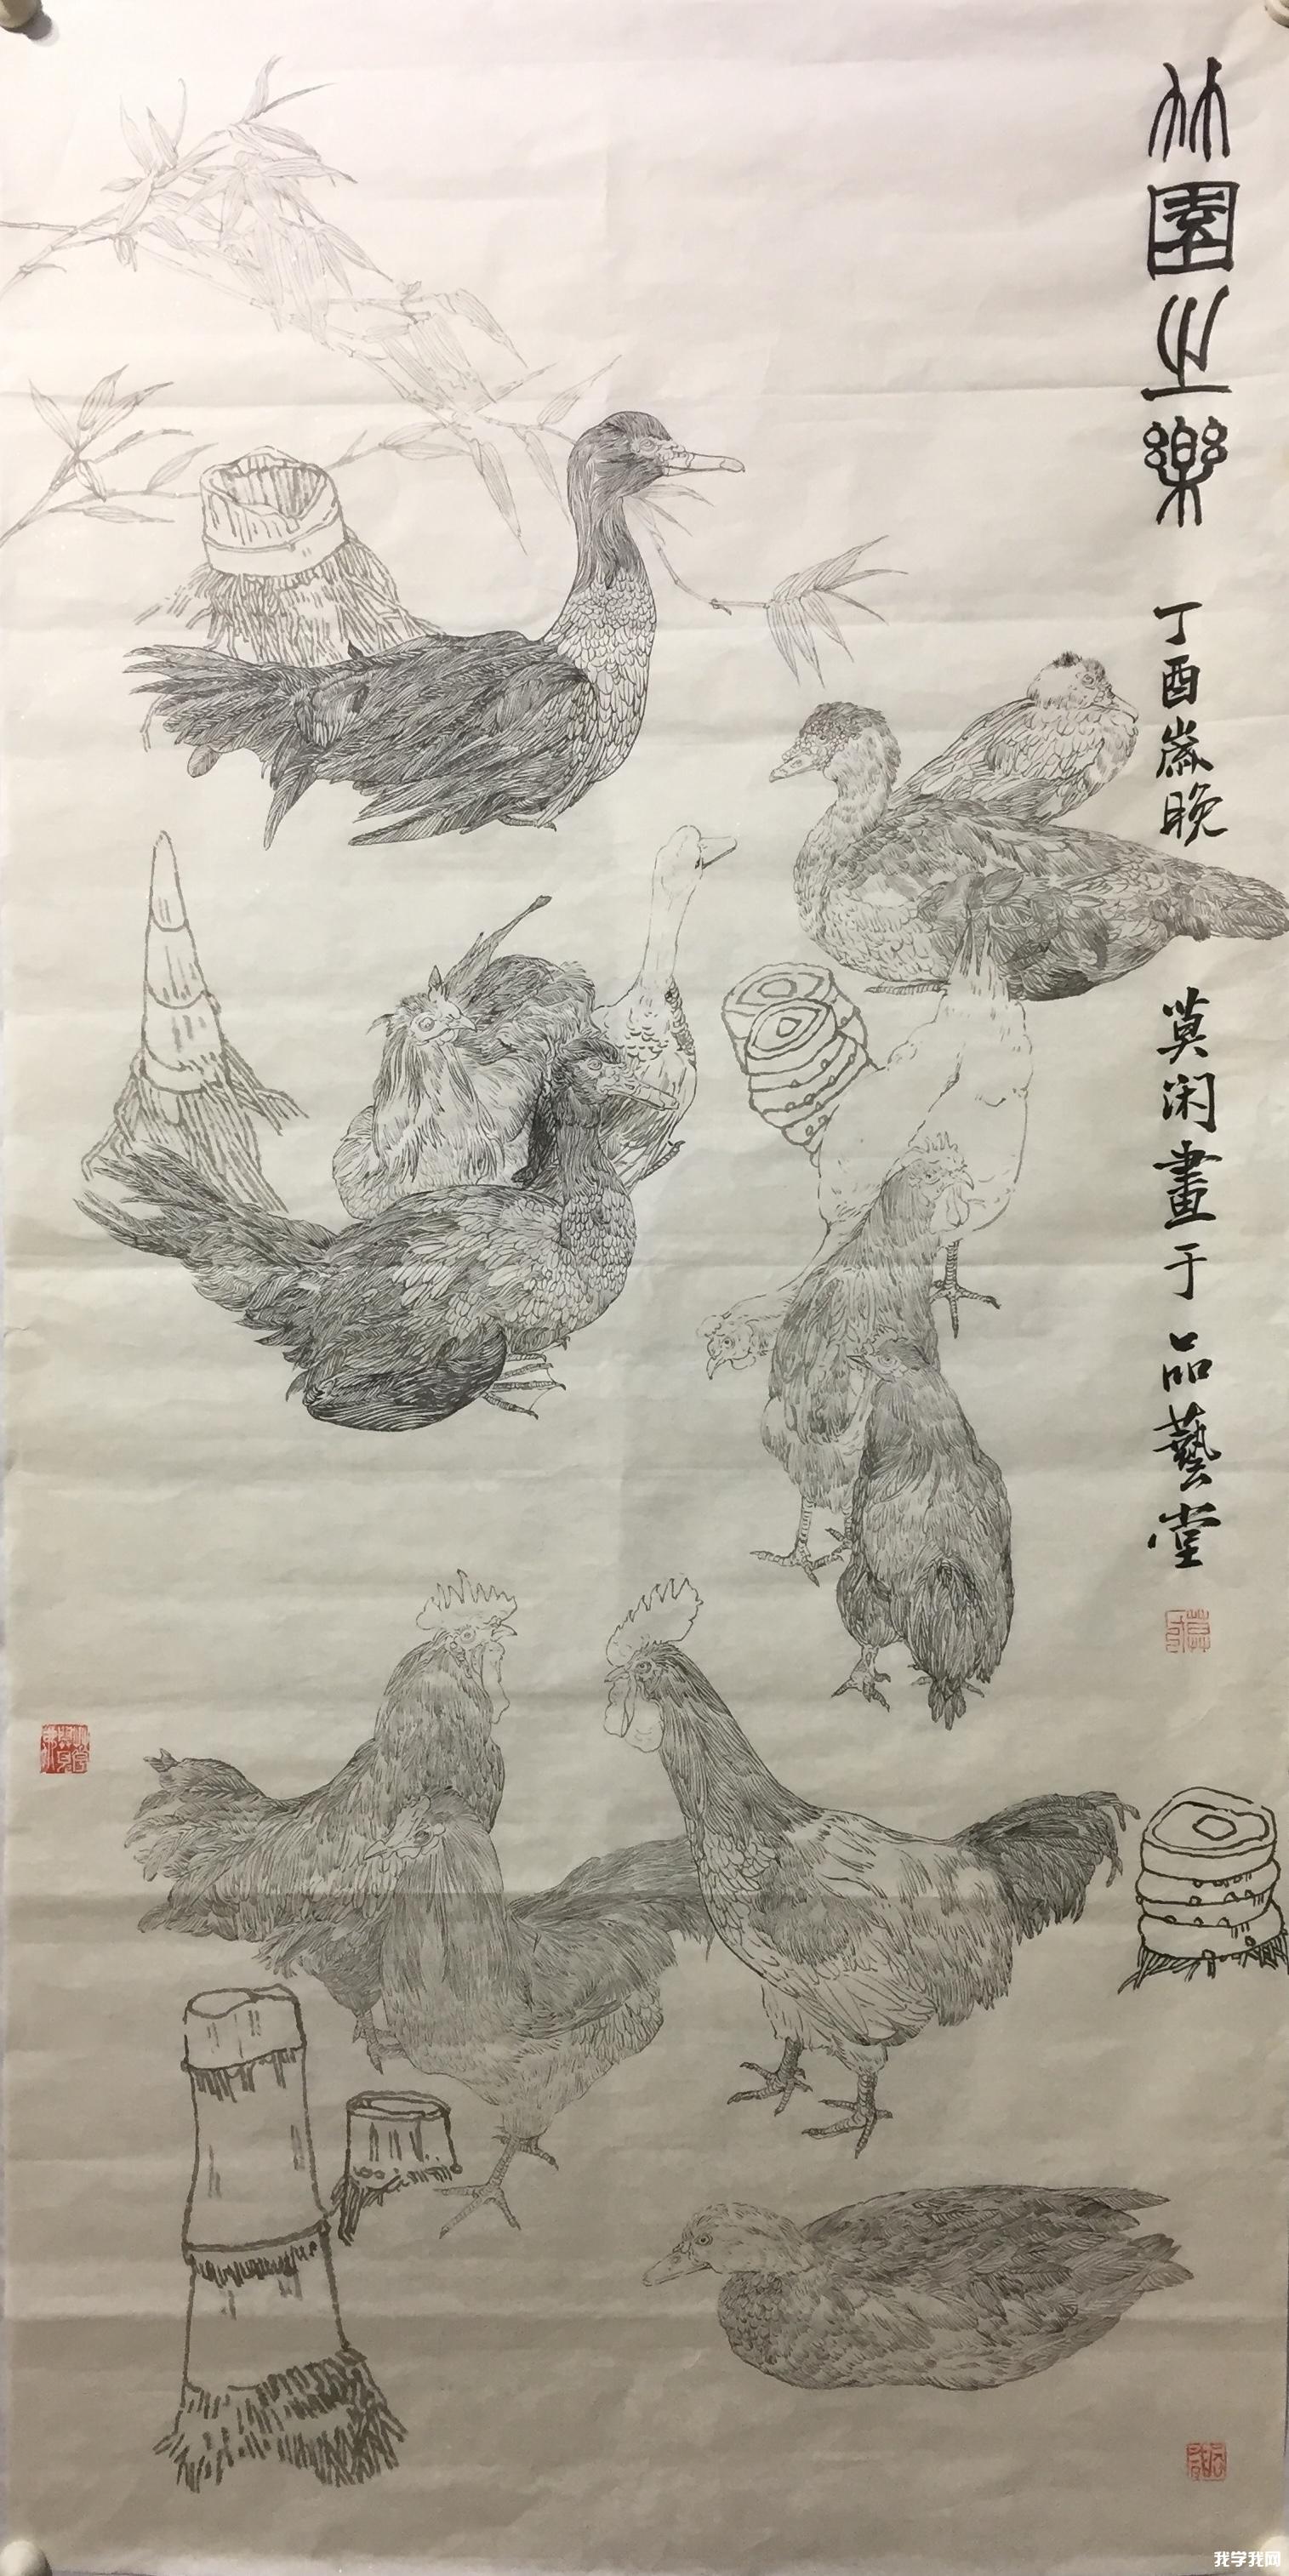 竹園之樂 丁酉歲晚 莫闲畫于品藝堂
我学我网